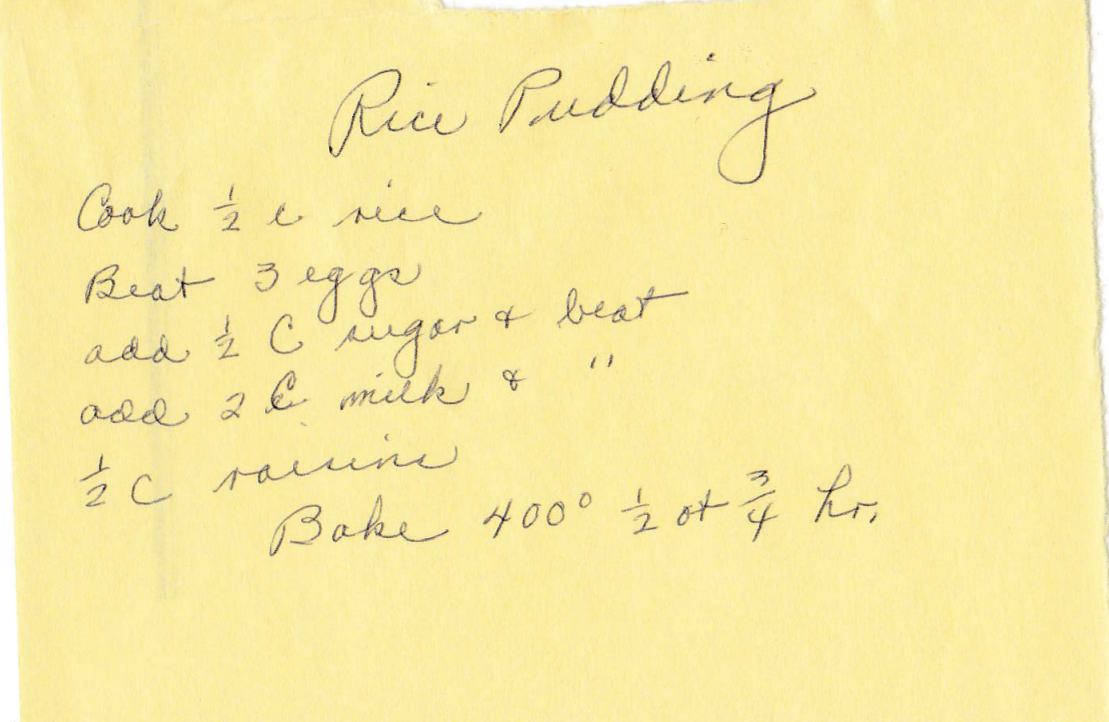 Rice Pudding
Cook ½ c rice
Beat 3 eggs
add ½ C sugar & beat
add 2 C milk & "
½ C raisins
Bake 400° ½ ot ¾ hr.